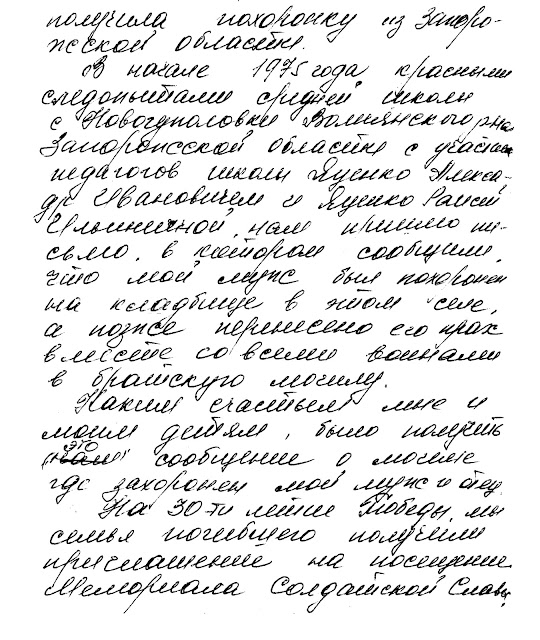 получила похоронку из Запоро-
жской области.
В начале 1975 года красными
следопытами средней школы
с Новогуполовки Вольнянского р-на
Запорожской области с участием
педагогов школы Яценко Алекса-
др Ивановичем и Яценко Раисой
Ильиничной, нам пришло пи-
сьмо, в котором сообщили,
что мой муж был похоронен
на кладбище в этом селе,
а позже перенесено его прах
вместе со всеми воинами
в братскую могилу.
Каким счастьем мне и
моим детям, было получить
это сообщение о могиле
где захоронен мой муж и отец.
На 30-ти летие Победы, мы
семья погибшего получили
приглашение на посещение
Мемориала Солдатской Славы,